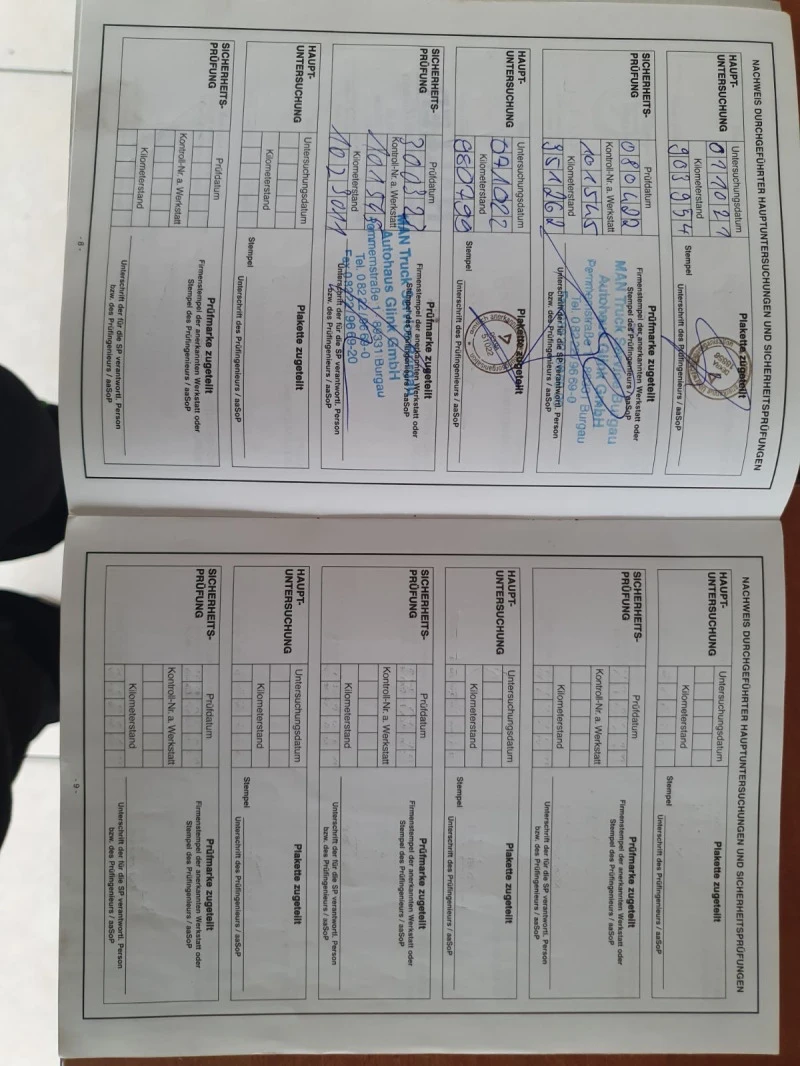 NACHWEIS DURCHGEFÜHRTER HAUPTUNTERSUCHUNGEN UND SICHERHEITSPRÜFUNGEN
HAUPT-
UNTERSUCHUNG
Untersuchungsdatum
011021
Kilometerstand
903954
Plakette zugeteilt
Stempel
Unterschrift des Prüfingenieurs / aaSoP
SICHERHEITS-
PRÜFUNG
Prüfdatum
080422
Kontroll-Nr. a. Werkstatt
101545
Kilometerstand
951262
Prüfmarke zugeteilt
Firmenstempel der anerkannten Werkstatt oder
Stempel des Prüfingenieurs / aaSoP
Burgau
Autohaus Glink GmbH
Unterschrift der für die SP verantwortl. Person
bzw. des Prüfingenieurs / aaSoP
HAUPT-
UNTERSUCHUNG
Untersuchungsdatum
071022
Kilometerstand
980799
Plakette zugeteilt
Stempel
Unterschrift des Prüfingenieurs / aaSoP
SICHERHEITS-
PRÜFUNG
Prüfdatum
Kontroll-Nr. a. Werkstatt
101545
Kilometerstand
1023011
Prüfmarke zugeteilt
Firmenstempel der anerkannten Werkstatt oder
Stempel des Prüfingenieurs / aaSoP
MAN Truck
Autohaus Glink GmbH
86331 Burgau
Unterschrift der für die SP verantwortl. Person
bzw. des Prüfingenieurs / aaSoP
HAUPT-
UNTERSUCHUNG
Untersuchungsdatum
Kilometerstand
Plakette zugeteilt
Stempel
Unterschrift des Prüfingenieurs / aaSoP
SICHERHEITS-
PRÜFUNG
Prüfdatum
Kontroll-Nr. a. Werkstatt
Kilometerstand
Prüfmarke zugeteilt
Firmenstempel der anerkannten Werkstatt oder
Stempel des Prüfingenieurs / aaSoP
Unterschrift der für die SP verantwortl. Person
bzw. des Prüfingenieurs / aaSoP
- 8 -
NACHWEIS DURCHGEFÜHRTER HAUPTUNTERSUCHUNGEN UND SICHERHEITSPRÜFUNGEN
HAUPT-
UNTERSUCHUNG
Untersuchungsdatum
Kilometerstand
Plakette zugeteilt
Stempel
Unterschrift des Prüfingenieurs / aaSoP
SICHERHEITS-
PRÜFUNG
Prüfdatum
Kontroll-Nr. a. Werkstatt
Kilometerstand
Prüfmarke zugeteilt
Firmenstempel der anerkannten Werkstatt oder
Stempel des Prüfingenieurs / aaSoP
Unterschrift der für die SP verantwortl. Person
bzw. des Prüfingenieurs / aaSoP
HAUPT-
UNTERSUCHUNG
Untersuchungsdatum
Kilometerstand
Plakette zugeteilt
Stempel
Unterschrift des Prüfingenieurs / aaSoP
SICHERHEITS-
PRÜFUNG
Prüfdatum
Kontroll-Nr. a. Werkstatt
Kilometerstand
Prüfmarke zugeteilt
Firmenstempel der anerkannten Werkstatt oder
Stempel des Prüfingenieurs / aaSoP
Unterschrift der für die SP verantwortl. Person
bzw. des Prüfingenieurs / aaSoP
HAUPT-
UNTERSUCHUNG
Untersuchungsdatum
Kilometerstand
Plakette zugeteilt
Stempel
Unterschrift des Prüfingenieurs / aaSoP
SICHERHEITS-
PRÜFUNG
Prüfdatum
Kontroll-Nr. a. Werkstatt
Kilometerstand
Prüfmarke zugeteilt
Firmenstempel der anerkannten Werkstatt oder
Stempel des Prüfingenieurs / aaSoP
Unterschrift der für die SP verantwortl. Person
bzw. des Prüfingenieurs / aaSoP
- 9 -